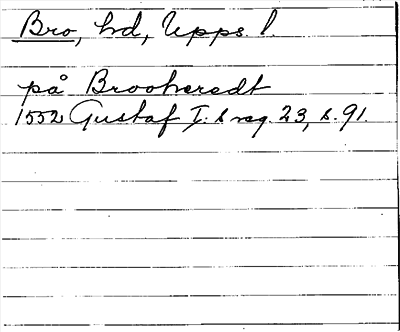 Bro, hd, Upps. l.
på Brooheredt
1552 Gustaf I:s reg. 23, s. 91.